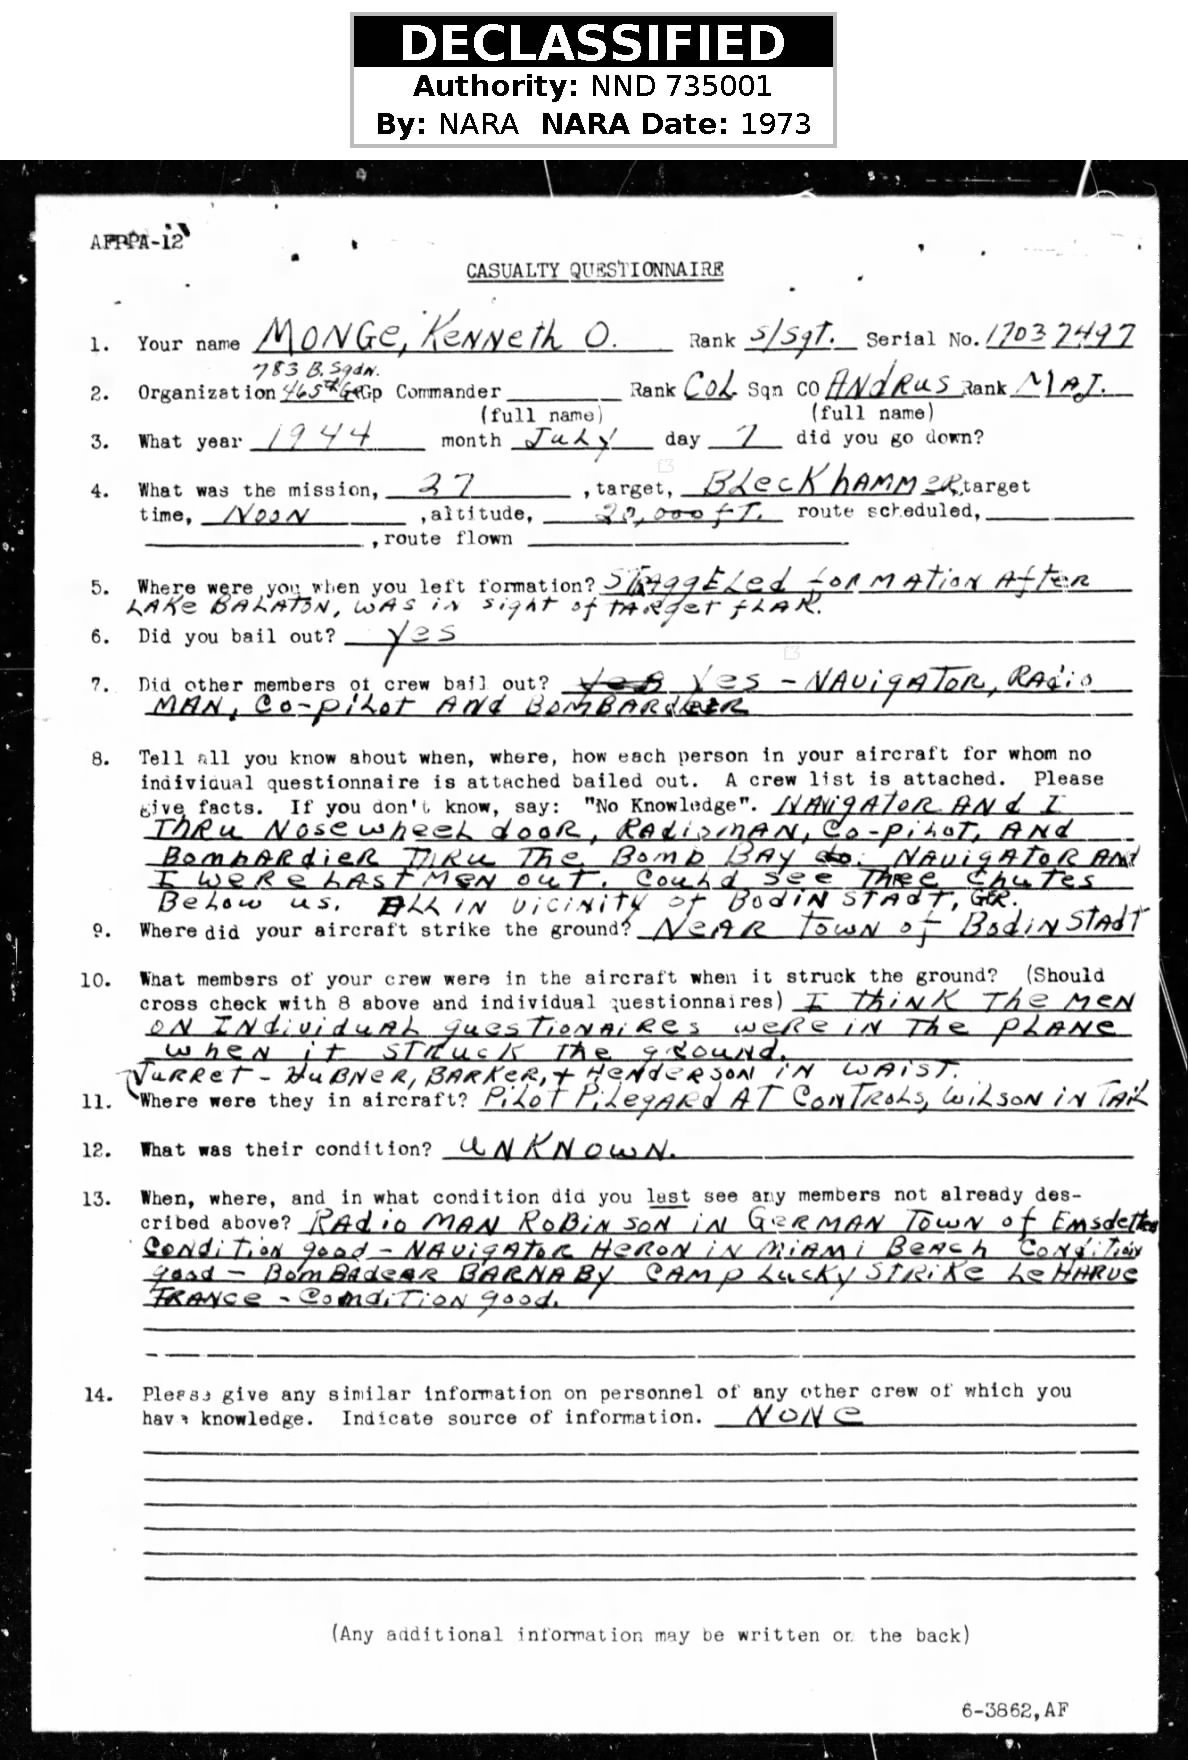 DECLASSIFIED
Authority: NND 735001
By: NARA NARA Date: 1973
AFPPA-12
CASUALTY QUESTIONNAIRE
1. Your name MONGe, KeNNeth O. Rank S/Sgt. Serial No. 17037497
783 B. Sqdn.
2. Organization 465th Gp Commander Rank COL Sqn CO ANdRUS Rank MAJ.
(full name) (full name)
3. What year 1944 month July day 7 did you go down?
4. What was the mission, 37, target, BLeckhAMMeR, target
time, NooN, altitude, 20,000 fT. route scheduled,
, route flown
5. Where were you when you left formation? STRAggELed foRMATioN AfteR
LAKe BALATON, WAS iN sight of tARget fLAK.
6. Did you bail out? yes
7. Did other members of crew bail out? Yes - NAVigAToR, RAdio
MAN, Co-piLot ANd BoMBARdieR
8. Tell all you know about when, where, how each person in your aircraft for whom no
individual questionnaire is attached bailed out. A crew list is attached. Please
give facts. If you don't know, say: "No Knowledge". NAVigAToR ANd I
ThRu Nosewheel dooR, RAdioMAN, Co-piLot, ANd
BoMbARdieR ThRu The BoMb BAY do. NAVigAToR ANd
I weRe LAST MeN out. CouLd see ThRee Chutes
BeLow us. ALL iN viciNiTy of BodiN STAdT, GeR.
9. Where did your aircraft strike the ground? NeAR TowN of BodiNSTAdT
10. What members of your crew were in the aircraft when it struck the ground? (Should
cross check with 8 above and individual questionnaires) I thiNK The MeN
oN INdividuAL questioNAiRes weRe iN The pLANe
wheN iT STRucK The gRouNd.
TuRReT - HuBNeR, BARKeR, + HeNdeRsoN iN wAisT.
11. Where were they in aircraft? PiLoT PiLegARd AT CoNTRoLs, wiLsoN iN TAiL
12. What was their condition? uNKNowN.
13. When, where, and in what condition did you last see any members not already des-
cribed above? RAdio MAN RoBiNsoN iN GeRMAN TowN of Emsdetten
CoNdiTioN good - NAVigAToR HeRoN iN MiAMi BeAch CoNdiTioN
good - BoMBAdeAR BARNABy CAMp Lucky STRiKe Le HARVe
FRANce - CoNdiTioN good.
14. Please give any similar information on personnel of any other crew of which you
have knowledge. Indicate source of information. NoNe
(Any additional information may be written on the back)
6-3862,AF